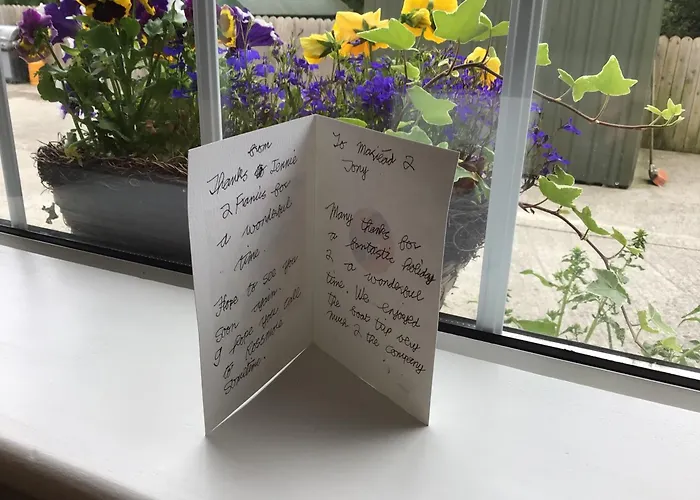 from
Thanks Jennie
2 Frank's for
a wonderful
time.
Hope to see you
soon again.
I hope you call
to Rossmore
sometime.
To Mairéad 2
Tony
Many thanks for
a fantastic holiday
2 a wonderful
time. We enjoyed
the boat trip very
much 2 the company